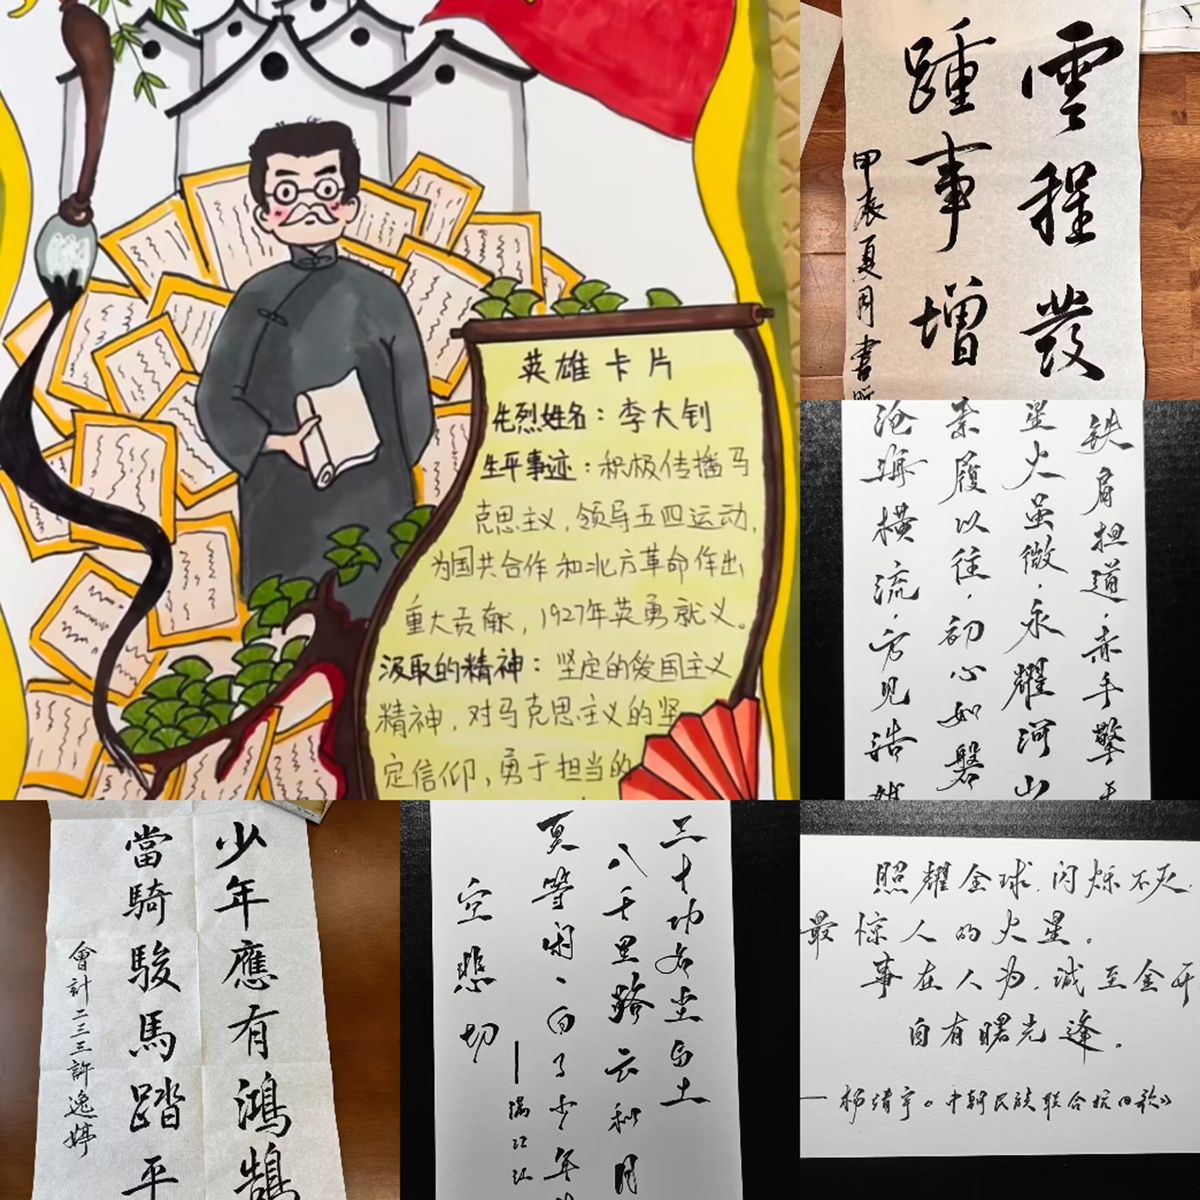 英雄卡片
先烈姓名：李大钊
生平事迹：积极传播马
克思主义，领导五四运动，
为国共合作和北方革命作出
重大贡献，1927年英勇就义。
汲取的精神：坚定的爱国主义
精神，对马克思主义的坚
定信仰，勇于担当的
雲程發
踵事增
甲辰夏月書於
铁肩担道，赤手擎
星火虽微，永耀河山
素履以往，初心如磐
沧海横流，方见浩
少年應有鴻鵠
當騎駿馬踏平
會計二三三許逸婷
三十功名尘与土
八千里路云和月
莫等闲、白了少年
空悲切
照耀全球，闪烁不灭，
最惊人的火星。
事在人为，诚至金开
自有曙光逢。
—杨靖宇《中朝民族联合抗日歌》